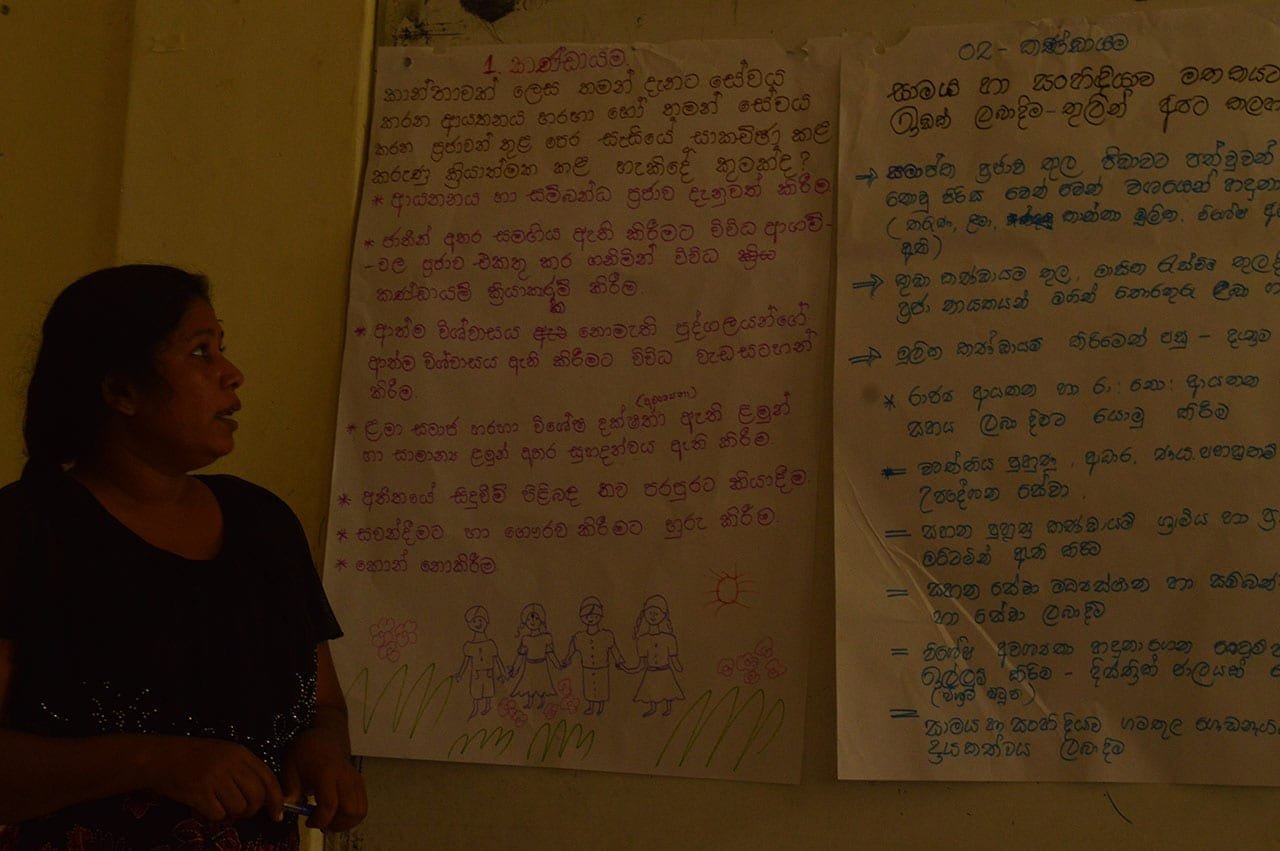 1 කණ්ඩායම.
කාන්තාවක් ලෙස තමන් දැනට සේවය
කරන ආයතනය හරහා හෝ තමන් සේවය
කරන ප්‍රජාවන් තුළ පෙර සැසියේ සාකච්ඡා කළ
කරුණු ක්‍රියාත්මක කළ හැකිදේ කුමක්ද?
* ආයතනය හා සම්බන්ධ ප්‍රජාව දැනුවත් කිරීම.
* ජාතීන් අතර සමඟිය ඇති කිරීමට විවිධ ආගම්-
-වල ප්‍රජාව එකතු කර ගනිමින් විවිධ
කණ්ඩායම් ක්‍රියාකරකම් කිරීම.
* ආත්ම විශ්වාසය නොමැති පුද්ගලයන්ගේ
ආත්ම විශ්වාසය ඇති කිරීමට විවිධ වැඩසටහන්
කිරීම.
(අවශ්‍යතා)
* ළමා සමාජ හරහා විශේෂ දක්ෂතා ඇති ළමුන්
හා සාමාන්‍ය ළමුන් අතර සුහදත්වය ඇති කිරීම
* අතීතයේ සිදුවීම් පිළිබඳ නව පරපුරට කියාදීම.
* සවන්දීමට හා ගෞරව කිරීමට හුරු කිරීම.
* කොන් නොකිරීම
02 - කණ්ඩායම
සාමය හා සංහිඳියාව
ලබාදීම - තුලින් අපට
→ සමාජික ප්‍රජාව තුල පීඩාවට පත්වූවන්
නොවූ පිරිස වෙන් වෙන් වශයෙන්
(තරුණ, ළමා, කාන්තා මූලික. විශේෂ
ඇති)
⇒ කුඩා කණ්ඩායම් තුල, මාසික රැස්වීම්
ප්‍රජා නායකයන් මගින් තොරතුරු ලබා
⇒ මූලික කණ්ඩායම් කිරීමෙන් පසු -
* රාජ්‍ය ආයතන හා රා: නො: ආයතන
සහය ලබාදීමට යොමු කිරීම
= වෘත්තීය පුහුණු, ආධාර,
උපදේශන සේවා.
= සහන පුහුණු කණ්ඩායම් ග්‍රාමීය හා
මට්ටමින් ඇති කිරීම
= සහන සේවා මධ්‍යස්ථාන හා
හා සේවා ලබාදීම
= විශේෂ අවශ්‍යතා හඳුනාගෙන
කිරීම - දිස්ත්‍රික් ජාලයක්
= සාමය හා සංහිඳියාව ගමතුල
දායකත්වය ලබාදීම